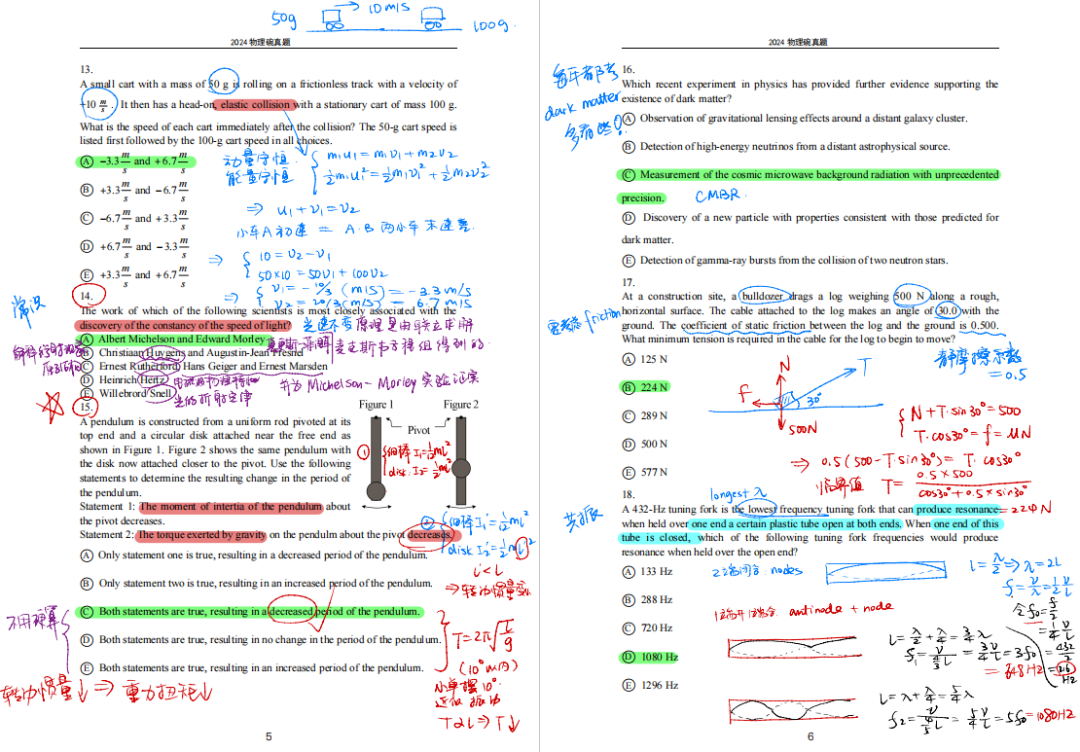 50g
10 m/s
100g
2024 物理碗真题
13.
A small cart with a mass of 50 g is rolling on a frictionless track with a velocity of
+10 m/s . It then has a head-on, elastic collision with a stationary cart of mass 100 g.
What is the speed of each cart immediately after the collision? The 50-g cart speed is
listed first followed by the 100-g cart speed in all choices.
Ⓐ −3.3 m/s and +6.7 m/s
Ⓑ +3.3 m/s and −6.7 m/s
Ⓒ −6.7 m/s and +3.3 m/s
Ⓓ +6.7 m/s and −3.3 m/s
Ⓔ +3.3 m/s and +6.7 m/s
动量守恒
能量守恒
m₁u₁ = m₁v₁ + m₂v₂
½m₁u² = ½m₁v₁² + ½m₂v₂²
⇒ u₁ + v₁ = v₂
小车A初速 = A.B 两小车末速差
⇒ 10 = v₂ − v₁
50×10 = 50v₁ + 100v₂
⇒ v₁ = −10/3 (m/s) = −3.3 m/s
v₂ = 20/3 (m/s) = 6.7 m/s
常识
14.
The work of which of the following scientists is most closely associated with the
discovery of the constancy of the speed of light?
光速不变原理是由联立求解
Ⓐ Albert Michelson and Edward Morley
麦克斯韦方程组得到的
Ⓑ Christiaan Huygens and Augustin-Jean Fresnel
Ⓒ Ernest Rutherford, Hans Geiger and Ernest Marsden
Ⓓ Heinrich Hertz
并为 Michelson-Morley 实验证实
Ⓔ Willebrord Snell
光的折射定律
15.
A pendulum is constructed from a uniform rod pivoted at its
top end and a circular disk attached near the free end as
shown in Figure 1. Figure 2 shows the same pendulum with
the disk now attached closer to the pivot. Use the following
statements to determine the resulting change in the period of
the pendulum.
Statement 1: The moment of intertia of the pendulum about
the pivot decreases.
Statement 2: The torque exerted by gravity on the pendulm about the pivot decreases.
Figure 1
Figure 2
Pivot
① 细棒 I₁=½mL²
disk I₂=½mL²
② 细棒 I₁'=½mL²
disk I₂'=½ml²
l<L
⇒转动惯量变小
Ⓐ Only statement one is true, resulting in a decreased period of the pendulum.
Ⓑ Only statement two is true, resulting in an increased period of the pendulum.
Ⓒ Both statements are true, resulting in a decreased period of the pendulum.
Ⓓ Both statements are true, resulting in no change in the period of the pendulum.
Ⓔ Both statements are true, resulting in an increased period of the pendulum.
不用硬算
转动惯量↓ ⇒ 重力扭矩↓
T=2π√(I/g)
(10°以内)
小单摆10°
近似振动
T∝L ⇒ T↓
5
2024 物理碗真题
每年都考
dark matter
多看些!
16.
Which recent experiment in physics has provided further evidence supporting the
existence of dark matter?
Ⓐ Observation of gravitational lensing effects around a distant galaxy cluster.
Ⓑ Detection of high-energy neutrinos from a distant astrophysical source.
Ⓒ Measurement of the cosmic microwave background radiation with unprecedented
precision.
CMBR.
Ⓓ Discovery of a new particle with properties consistent with those predicted for
dark matter.
Ⓔ Detection of gamma-ray bursts from the collision of two neutron stars.
17.
At a construction site, a bulldozer drags a log weighing 500 N along a rough,
horizontal surface. The cable attached to the log makes an angle of 30.0 with the
ground. The coefficient of static friction between the log and the ground is 0.500.
What minimum tension is required in the cable for the log to begin to move?
需考虑 friction
静摩擦系数
= 0.5
Ⓐ 125 N
Ⓑ 224 N
Ⓒ 289 N
Ⓓ 500 N
Ⓔ 577 N
N
T
f
30°
500N
N + T·sin30° = 500
T·cos30° = f = μN
⇒ 0.5(500 − T·sin30°) = T·cos30°
临界值 T = 0.5×500 / cos30°+0.5×sin30°
= 224 N
18.
longest λ
共振
A 432-Hz tuning fork is the lowest frequency tuning fork that can produce resonance
when held over one end a certain plastic tube open at both ends. When one end of this
tube is closed, which of the following tuning fork frequencies would produce
resonance when held over the open end?
Ⓐ 133 Hz
Ⓑ 288 Hz
Ⓒ 720 Hz
Ⓓ 1080 Hz
Ⓔ 1296 Hz
nodes
L = λ/2 ⇒ λ = 2L
antinode + node
L = λ/2 + λ/4 = 3/4 λ
= 3f₀
= 648 Hz
L = λ + λ/4 = 5/4 λ
= 5V/4L = 5f₀ = 1080Hz
6